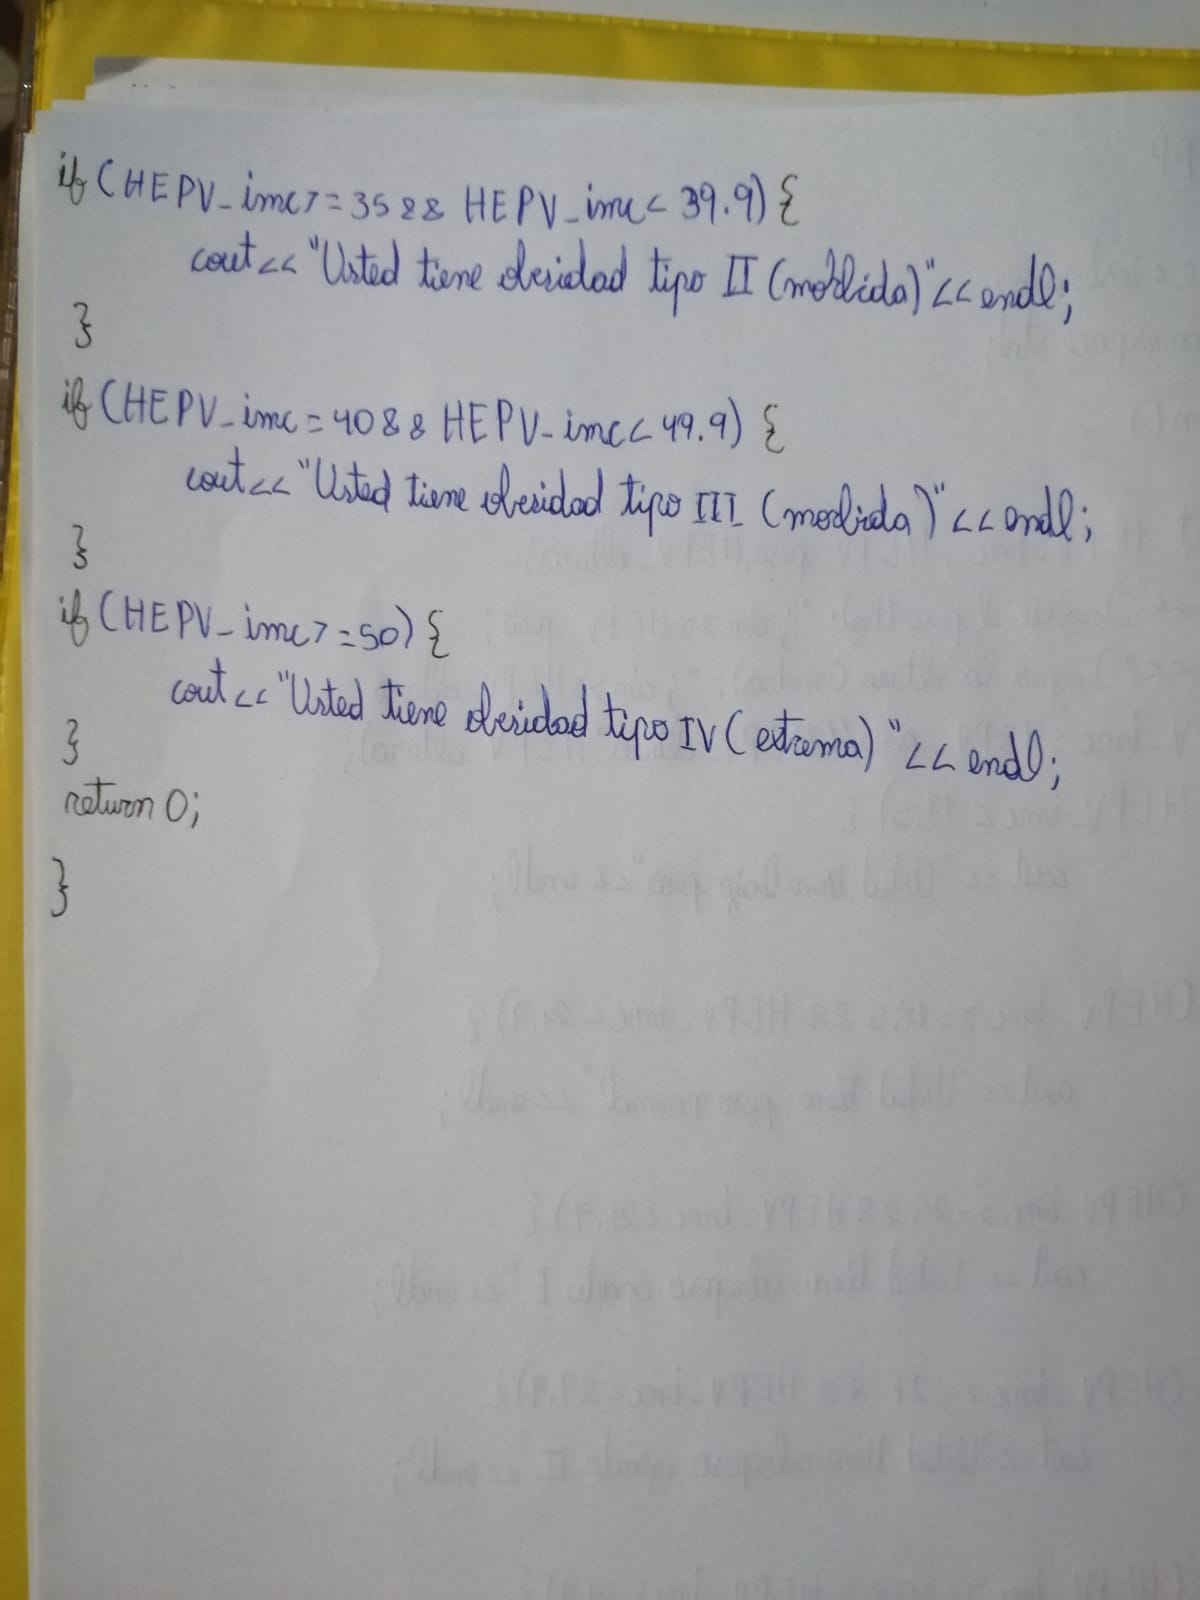 if (HEPV_imc>=35 && HEPV_imc< 39.9) {
cout<< "Usted tiene obesidad tipo II (mórbida)"<< endl;
}
if (HEPV_imc=40 && HEPV_imc< 49.9) {
cout<< "Usted tiene obesidad tipo III (morbida)"<< endl;
}
if (HEPV_imc>=50) {
cout<< "Usted tiene obesidad tipo IV (extrema)"<< endl;
}
return 0;
}